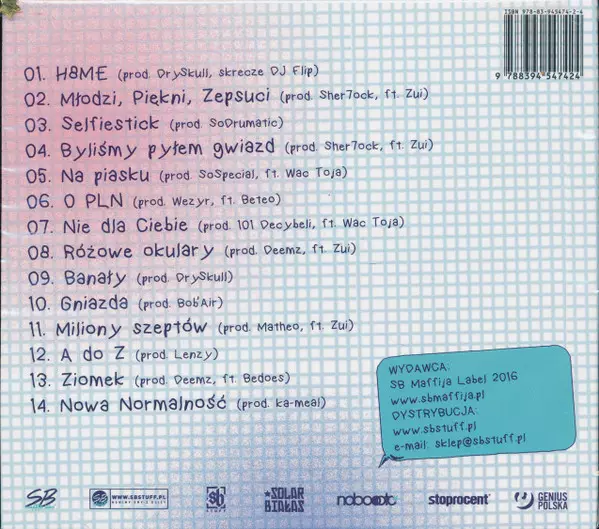 ISBN 978-83-945474-2-4
9 788394 547424
01. H8ME (prod. DrySkull, skrecze DJ Flip)
02. Młodzi, Piękni, Zepsuci (prod. Sher7ock, ft. Zui)
03. Selfiestick (prod. SoDrumatic)
04. Byliśmy pyłem gwiazd (prod. Sher7ock, ft. Zui)
05. Na piasku (prod. SoSpecial, ft. Wac Toja)
06. O PLN (prod. Wezyr, ft. Beteo)
07. Nie dla Ciebie (prod. 101 Decybeli, ft. Wac Toja)
08. Różowe okulary (prod. Deemz, ft. Zui)
09. Banały (prod. DrySkull)
10. Gniazda (prod. Bob'Air)
11. Miliony szeptów (prod. Matheo, ft. Zui)
12. A do Z (prod. Lenzy)
13. Ziomek (prod. Deemz, ft. Bedoes)
14. Nowa Normalność (prod. ka-meal)
WYDAWCA:
SB Maffija Label 2016
www.sbmaffija.pl
DYSTRYBUCJA:
www.sbstuff.pl
e-mail: sklep@sbstuff.pl
SB
WWW.SBSTUFF.PL
sb
SOLAR
BIAŁAS
stoprocent
GENIUS
POLSKA